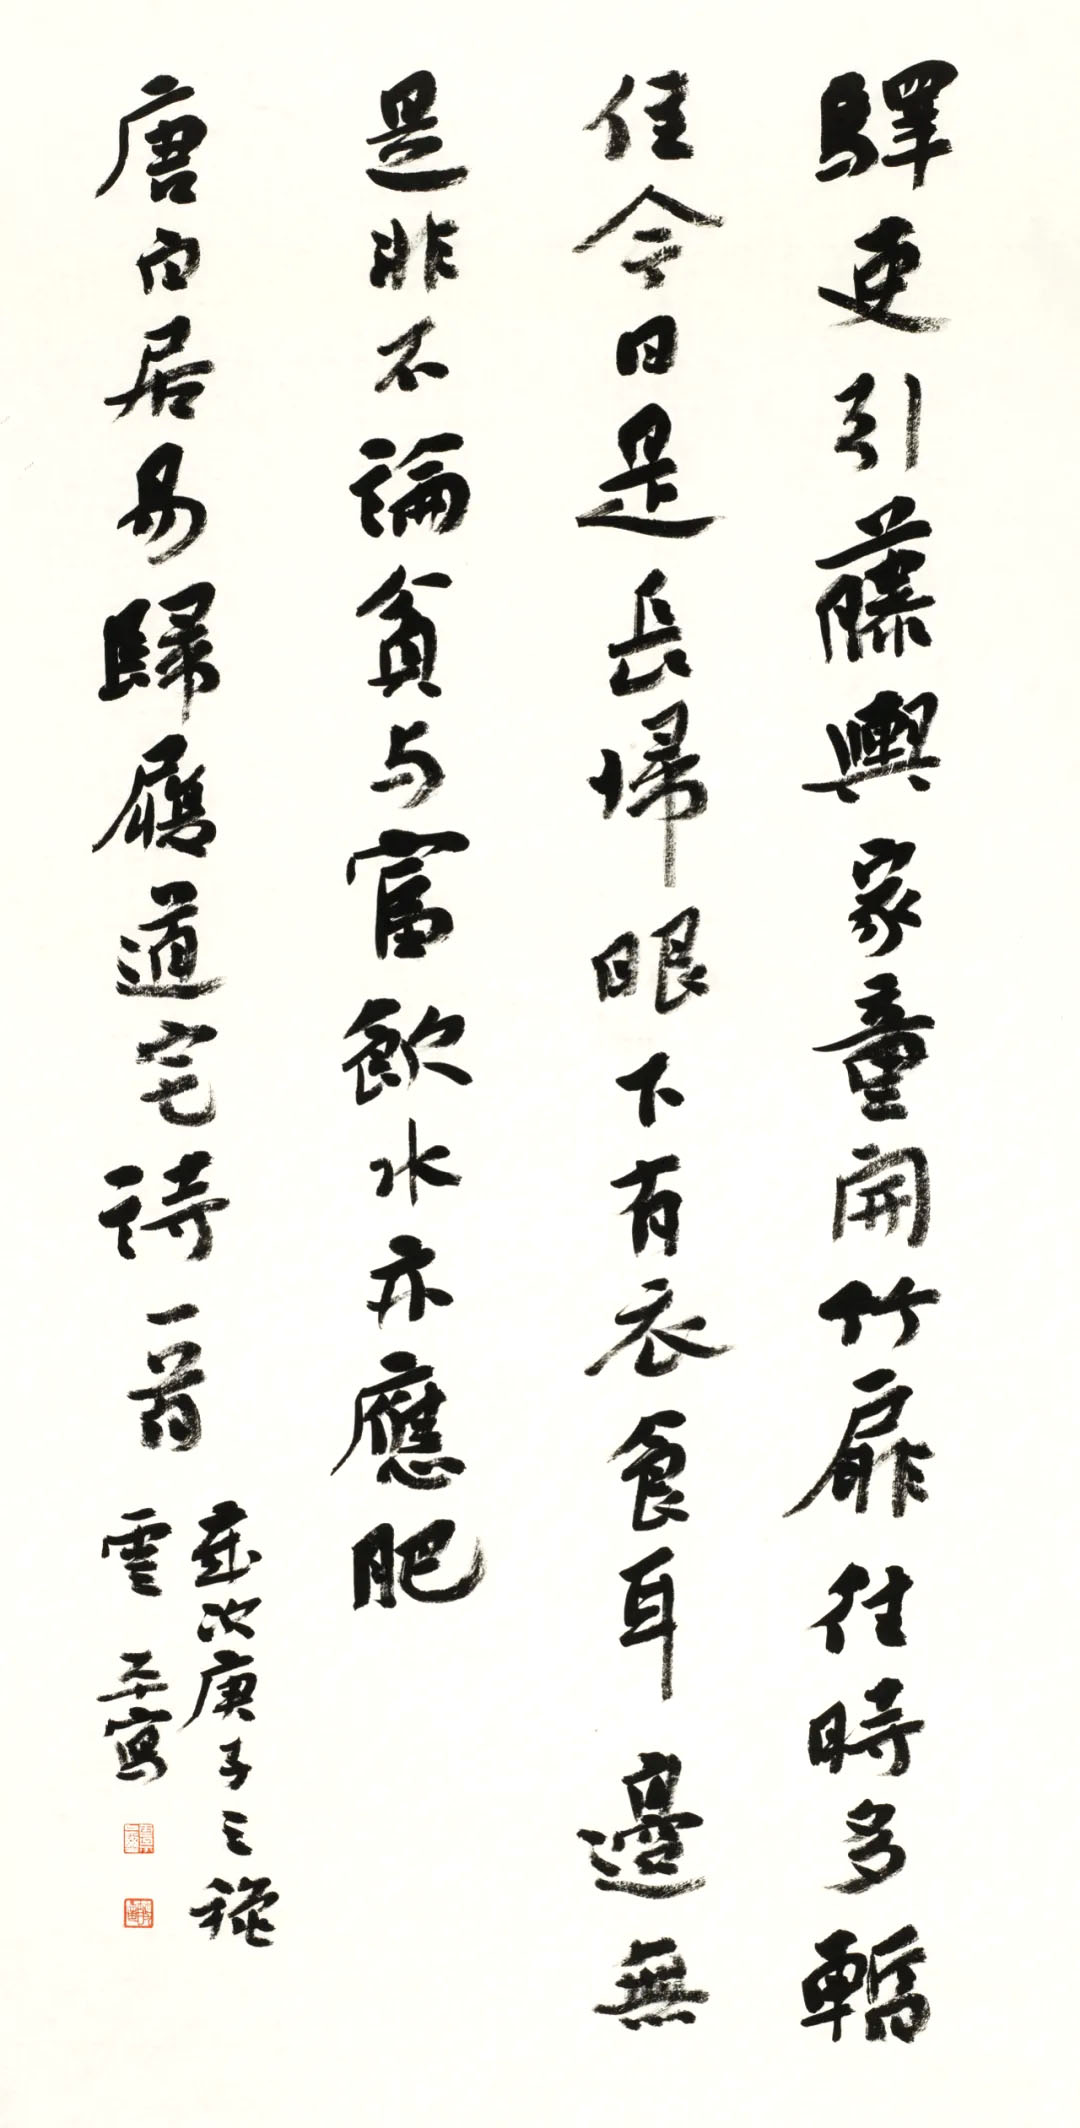 驛吏引藤輿家童開竹扉往時多暫
住今日是長歸眼下有衣食耳邊無
是非不論貧与富飲水亦應肥
唐白居易歸履道宅詩一首
歲次庚子之秋
雲平寫